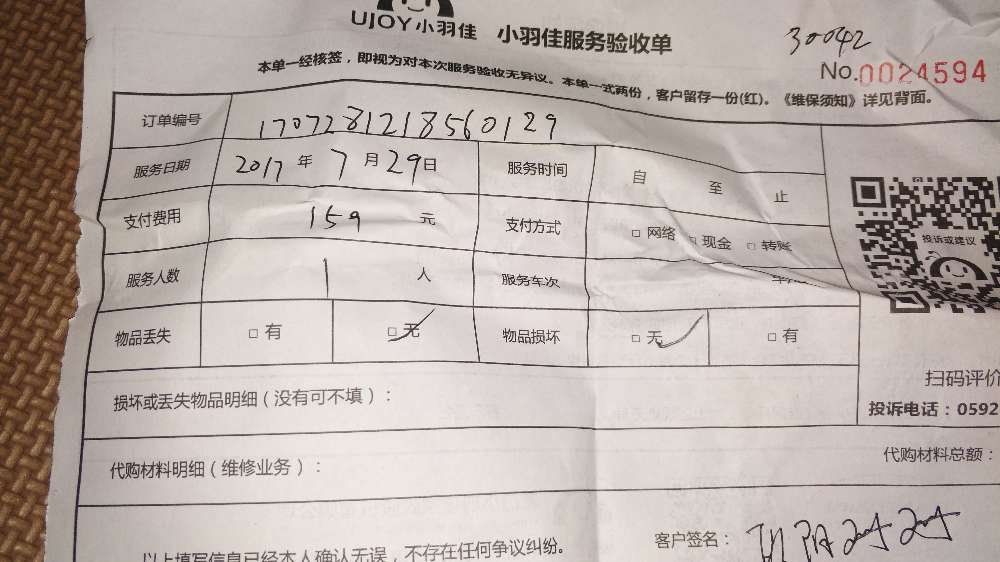 UJOY小羽佳 小羽佳服务验收单
30042
No.0024594
本单一经核签，即视为对本次服务验收无异议。本单一式两份，客户留存一份(红)。《维保须知》详见背面。
订单编号 1707281218560129
服务日期 2017 年 7 月 29 日 服务时间 自 至 止
支付费用 159 元 支付方式 □ 网络 □ 现金 □ 转账
服务人数 1 人 服务车次
物品丢失 □ 有 □ 无 物品损坏 □ 无 □ 有
投诉或建议
扫码评价
投诉电话：0592
损坏或丢失物品明细（没有可不填）：
代购材料明细（维修业务）： 代购材料总额：
以上填写信息已经本人确认无误，不存在任何争议纠纷。
客户签名：